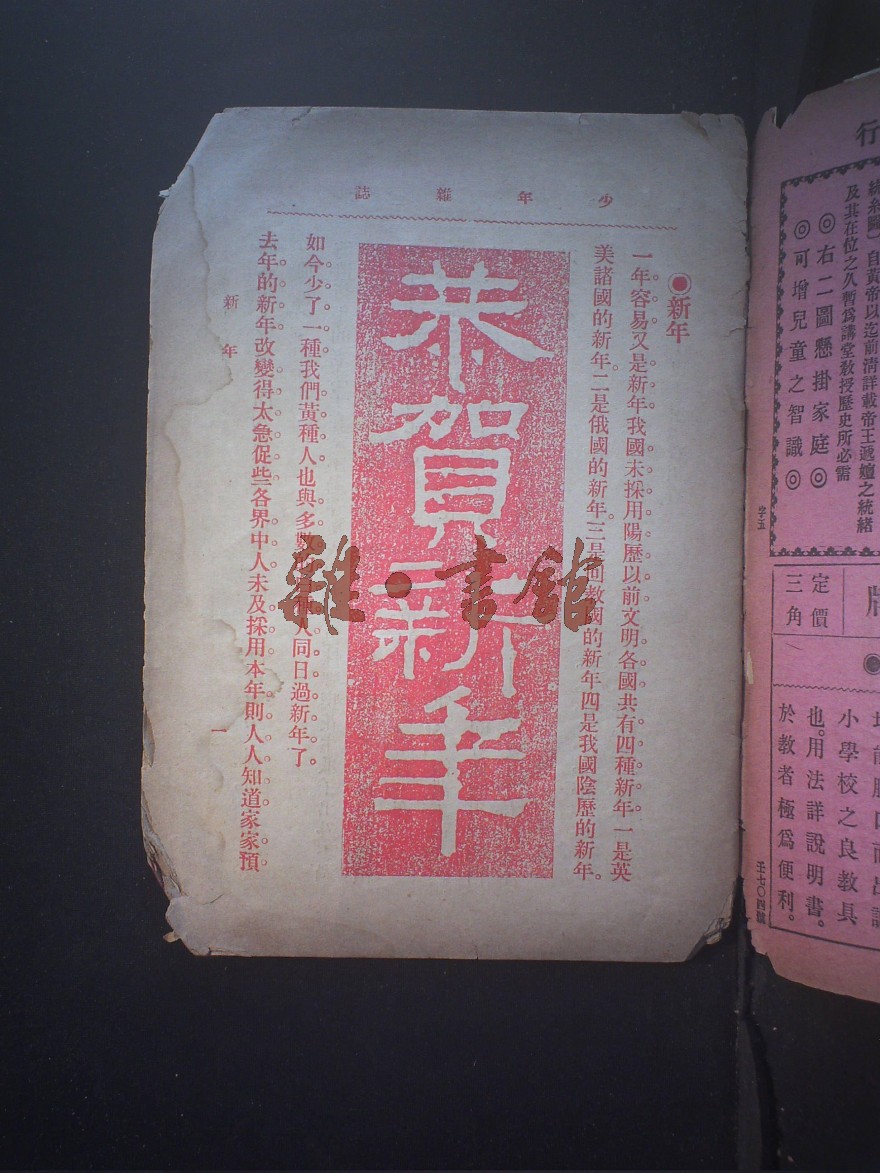 行
自黃帝以迄前清詳載帝王遞嬗之統緒
及其在位之久暫爲講堂敎授歷史所必需
◎右二圖懸掛家庭◎
◎可增兒童之智識◎
字五
定價
三角
小學校之良教具
也。用法詳說明書。
於教者極爲便利。
壬七〇四號
少年雜誌
◉新年
一年容易又是新年我國未採用陽歷以前文明各國共有四種新年一是英
美諸國的新年二是俄國的新年三是回教國的新年四是我國陰歷的新年。
恭賀新年
如今少了一種我們黃種人也與多數人同日過新年了。
去年的新年改變得太急促些各界中人未及採用本年則人人知道家家預
新年
一
雜·書館